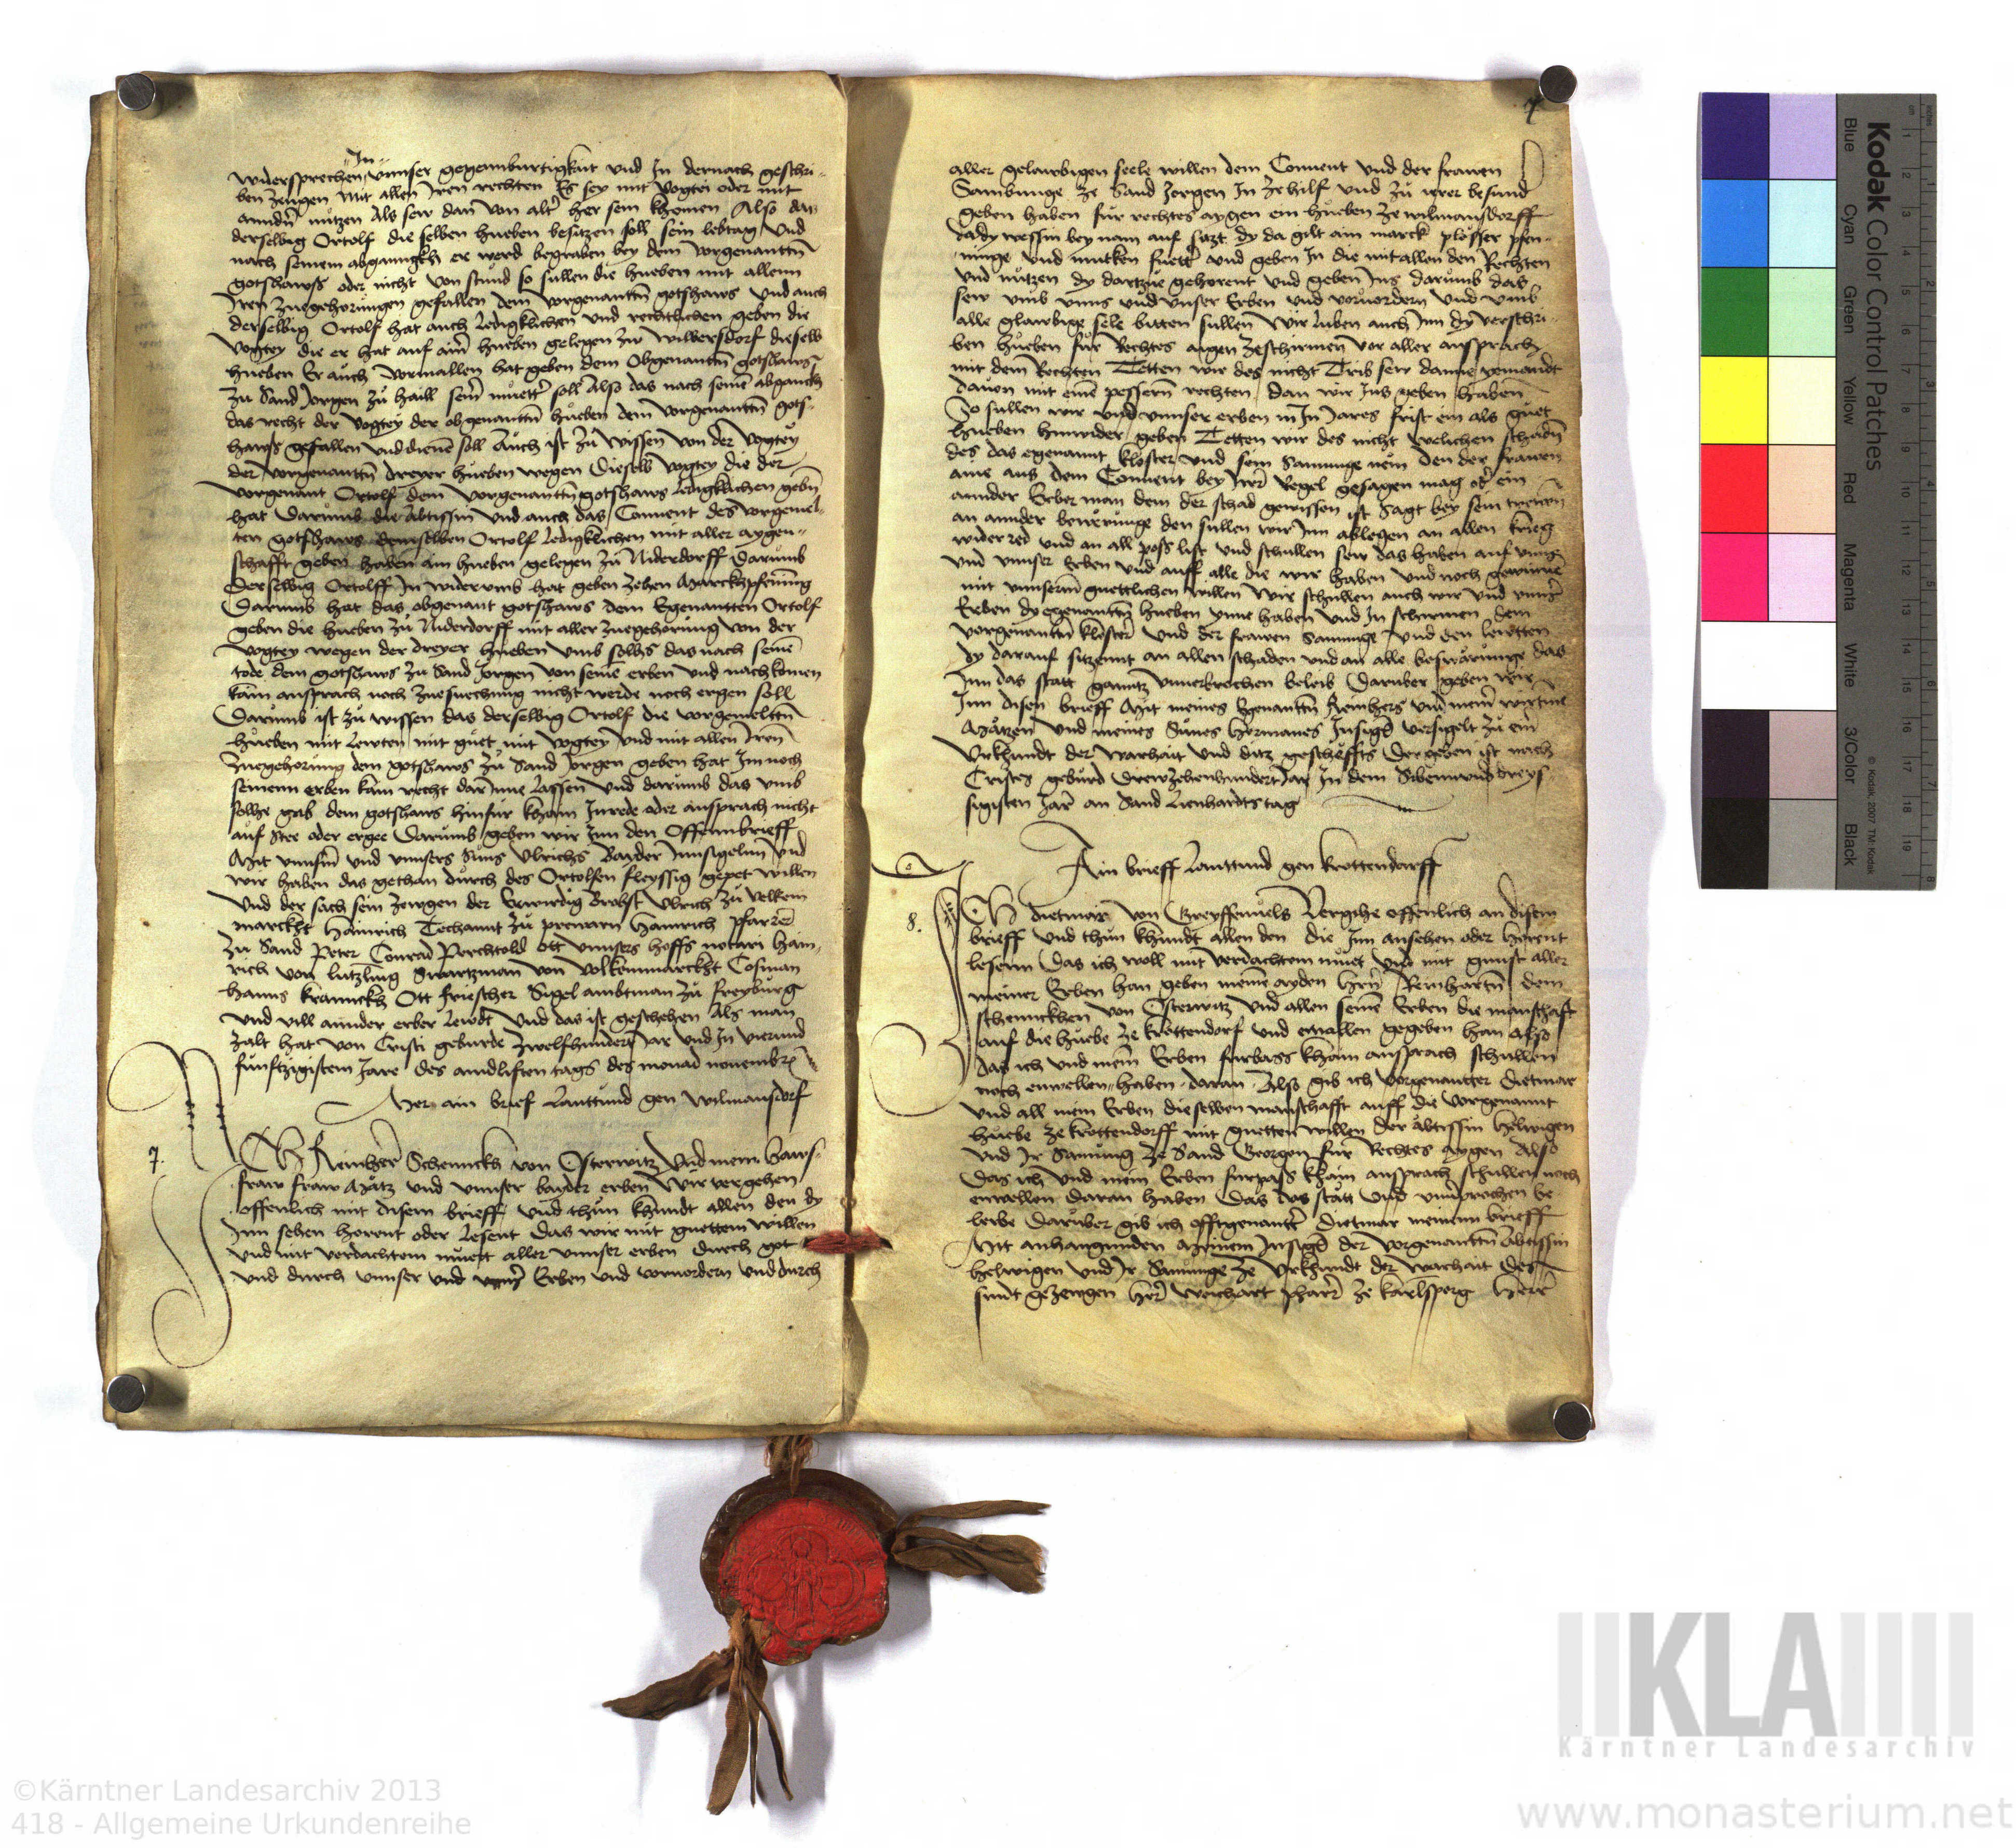 "In"
widersprechen vnnser gegennburtigkait vnd In dernach geschri-
ben zeugen Mit allen Iren rechten Es sey mit Vogtei oder mit
anndern nutzen Als sew dan von alter her sein khomen Also das
derselbig Ortolf die selben hueben besitzen soll sein lebtag Vnd
nach seinem abganngkh er werd begraben bey dem vorgenantten
gotshawss oder nicht von stund so sullen die hueben mit allenn
Iren zuegehorungen gefallen dem vorgenantten gotshaws Vnd auch
derselbig Ortolf hat auch ledigklichen vnd rechtlichen geben die
Vogtey die er hat auf ainer hueben gelegen zw wilberstorf dieselb
hueben Er auch vormallen hat geben dem Obgenantten gotshaws
Zu Sand Jorgen zu haill seiner muetter soll Also das nach seinem abganckh
das recht der Vogtey der obgenantten hueben dem vorgenantten gots-
hawss gefallen vnd dienen soll Auch ist zu wissen von der Vogtey
der vorgenantten dreyer hueben wegen Dieselb Vogtey die der
vorgenant Ortolf dem vorgenantten gotshaws ledigklichen geben
hat Darumb die Abtissin vnd auch das Conuent des vorgemel-
ten gotshaws demselben Ortolf ledigklichen mit aller aygen-
schafft geben haben ain hueben gelegen zu Niderdorff Darumb
Derselbig Ortolff In widerumb hat geben zehen Marckhpfenning
Darumb hat das obgenant gotshaws dem Egenantten Ortolf
geben die hueben zu Niderdorff mit aller zuegehorung von der
Vogtey wegen der dreyer hueben Vmb solhs das nach seinem
tode dem gotshaws zu Sand Jorgen von seinen erben vnd nachkomen
kain ansprach noch zuesuechung nicht werde noch ergen soll
Darumb ist zu wissen das derselbig Ortolf die vorgemeltten
hueben mit lewten mit guet mit vogtey vnd mit allen Iren
zuegehorung dem gotshaws zu Sand Jorgen geben hat Im noch
seinenn erben kain recht darInne lassen Vnd darumb das vmb
solhe gab dem gotshaws hinfur khain Inrede oder ansprach nicht
auf stee oder ergee Darumb geben wir Inn den Offennbrieff
Mit vnnserm vnd vnnsers Suns Vlrichs Bayder Innsigelnn Vnd
wir haben das gethan durch des Ortolfen fleyssig gepet willen
Vnd der sach sein zewgen der Erwirdig Brobst Vlrich zu Velken
marckht Hainrich Techannt zu prewarn Hainrich pfarrer
zu Sand Peter Conrad Perchtold Ott vnnsers hoffs notari Hain-
rich von lutzling Swartzman von Volkenmarckht Cosman
hanns kranckh Ott Friescher Sigel ambtman zu Freyburg
Vnd vill annder erber lewdt Vnd das ist geschehen Als man
zalt hat von Cristi geburde zwelfhundert Jar vnd In vierund
funfftzigistem Jare des aindliften tags des monad nouembris
Mer ain brief lauttund gen Wilmansdorf
7.
WIr Reinher Schennckh von Osterwitz Vnd mein haws-
fraw fraw Matz vnd vnnser bayder erben Wir vergehen
offenlich mit disem brieff Vnd thun khundt allen den dy
Inn sehen horent oder lesent das wir mit guettem willen
vnd mit verdachtem muet aller vnnser erben durch got
vnd durch vnnser vnd vnnser Erben vnd voruordern vnd durch
7
aller gelawbigen seele willen dem Conuent vnd der frawen
Sambnunge ze Sand Jorgen In ze hilf vnd zu irer besund
geben haben fur rechtes aygen ein hueben ze wilmansdorff
da dy wessin bey nam auf sitzt dy da gilt ain marck plosser phen-
ninge vnd mutken fuetter vnd geben In die mit allen den Rechten
vnd nutzen dy dartzue gehorent vnd geben Ins darumb das
sew vmb vnns vnd vnser Erben vnd voruordern vnd vmb
alle glawbige sele bitten sullen Wir luben auch Inn dy verschri-
ben hueben fur Rechtes aigen zeschirmen vor aller ansprach
mit dem Rechten Tetten wir des nicht Trib sew danne yemandt
dauon mit einem pessern rechten dan wir Ins geben haben
So sullen wir vnd vnnser erben in In Jares frist ein als guet
hueben hinwider geben Tetten wir des nicht welichen schaden
des das egenannt kloster vnd sein Samnunge nem den der frawen
aine aus dem Conuent bey Irer Regel gesagen mag oder ein
annder Erber man dem der schad gewissen ist Sagt bey sein trewen
an annder bewerunge den sullen wir Inn ablegen an allen krieg
wider red vnd an all poss list vnd schullen sew das haben auf vnns
vnd vnnser Erben vnd auff alle die wir haben vnd noch gewinnen
mit vnnserm guettlichen willen Wir schullen auch wir vnd vnnser
Erben dy egenantten hueben ynne haben vnd In schirmen dem
vorgenantten kloster vnd der frawen Samnunge vnd den lewtten
dy darauf sitzennt an allen schaden vnd an alle beswarunge das
Inn das statt ganntz vnnerbrochen beleib Daruber geben wir
Inn disen brieff Mit meines Egenantten Reinhers vnd meiner wirtine
Matzen vnd meines Sunes hermanes Insigel versigelt zu ein
Vrkhundt der warhait vnd ditz gescheffts Der geben ist nach
Cristes geburd drewzehenhundert Jar In dem Sibennunddreys
sigisten Jar an Sand Lienhardts tag
Ain brieff lauttund gen krottendorff
8.
ICh dietmar von Greyffenuels Vergihe offenlich an disem
brieff vnd thun khundt allen den die Inn ansehen oder horent
lesenn Das ich woll mit verdachtem muet vnd mit gunst aller
meiner Erben han geben meinem ayden hern Reinharten dem
schennckhen von Osterwitz vnd allen seinen Erben die manschaft
auf die huebe ze krottendorf vnd emallen gegeben han Also
das ich vnd mein Erben furbass khain ansprach schullen
noch enwellen haben daran Also gib ich vorgenantter dietmar
vnd all mein Erben dieselben manschafft auff die vorgenannt
huebe ze krottendorff mit guetten willen der abtissin helwigen
vnd Ir Samnung ze Sand Georgen fur Rechtes aygen Also
das ich vnd mein Erben furpass khain ansprach schullen noch
enwellen daran haben das das statt vnd vnuerprochen be-
leibe Daruber gib ich offtgenantter dietmar meinenn brieff
Mit anhangunden Meinem Insigel der vorgenantten Abtissin
helwigen vnd Ir Samnunge ze Vrkhundt der warhait des
sindt gezewgen her weichart pharrer ze karlsperg Herr
Kodak Color Control Patches
Blue Cyan Green Yellow Red Magenta White 3/Color Black
© Kodak, 2007 TM: Kodak
KLA
Kärntner Landesarchiv
©Kärntner Landesarchiv 2013
418 - Allgemeine Urkundenreihe
www.monasterium.net